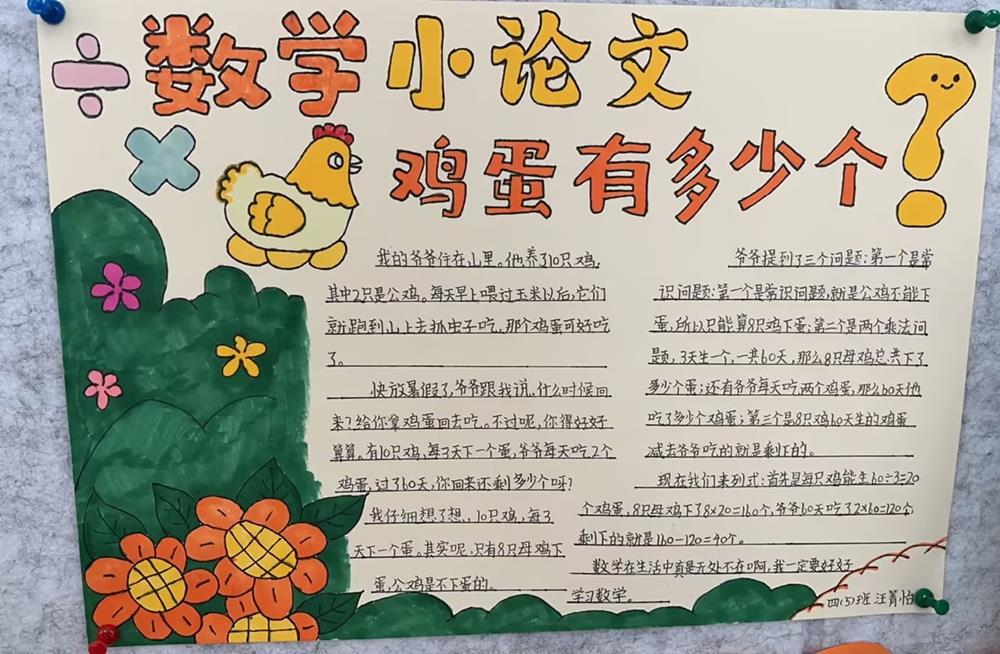 数学小论文
鸡蛋有多少个?
我的爷爷住在山里。他养了10只鸡,
其中2只是公鸡。每天早上喂过玉米以后,它们
就跑到山上去抓虫子吃,那个鸡蛋可好吃
了。
快放暑假了,爷爷跟我说,什么时候回
来?给你拿鸡蛋回去吃。不过呢,你得好好
算算。有10只鸡,每3天下一个蛋,爷爷每天吃2个
鸡蛋,过了60天,你回来还剩多少个呀?
我仔细想了想,10只鸡,每3
天下一个蛋。其实呢,只有8只母鸡下
蛋,公鸡是不下蛋的。
爷爷提到了三个问题:第一个是常
识问题:第一个是常识问题,就是公鸡不能下
蛋,所以只能算8只鸡下蛋;第二个是两个乘法问
题,3天生一个,一共60天,那么8只母鸡总共下了
多少个蛋;还有爷爷每天吃两个鸡蛋,那么60天他
吃了多少个鸡蛋;第三个是8只鸡60天生的鸡蛋
减去爷爷吃的就是剩下的。
现在我们来列式:首先是每只鸡能生60÷3=20
个鸡蛋,8只母鸡下了8×20=160个,爷爷60天吃了2×60=120个,
剩下的就是160-120=40个。
数学在生活中真是无处不在啊,我一定要好好
学习数学。
四(5)班 汪菁怡